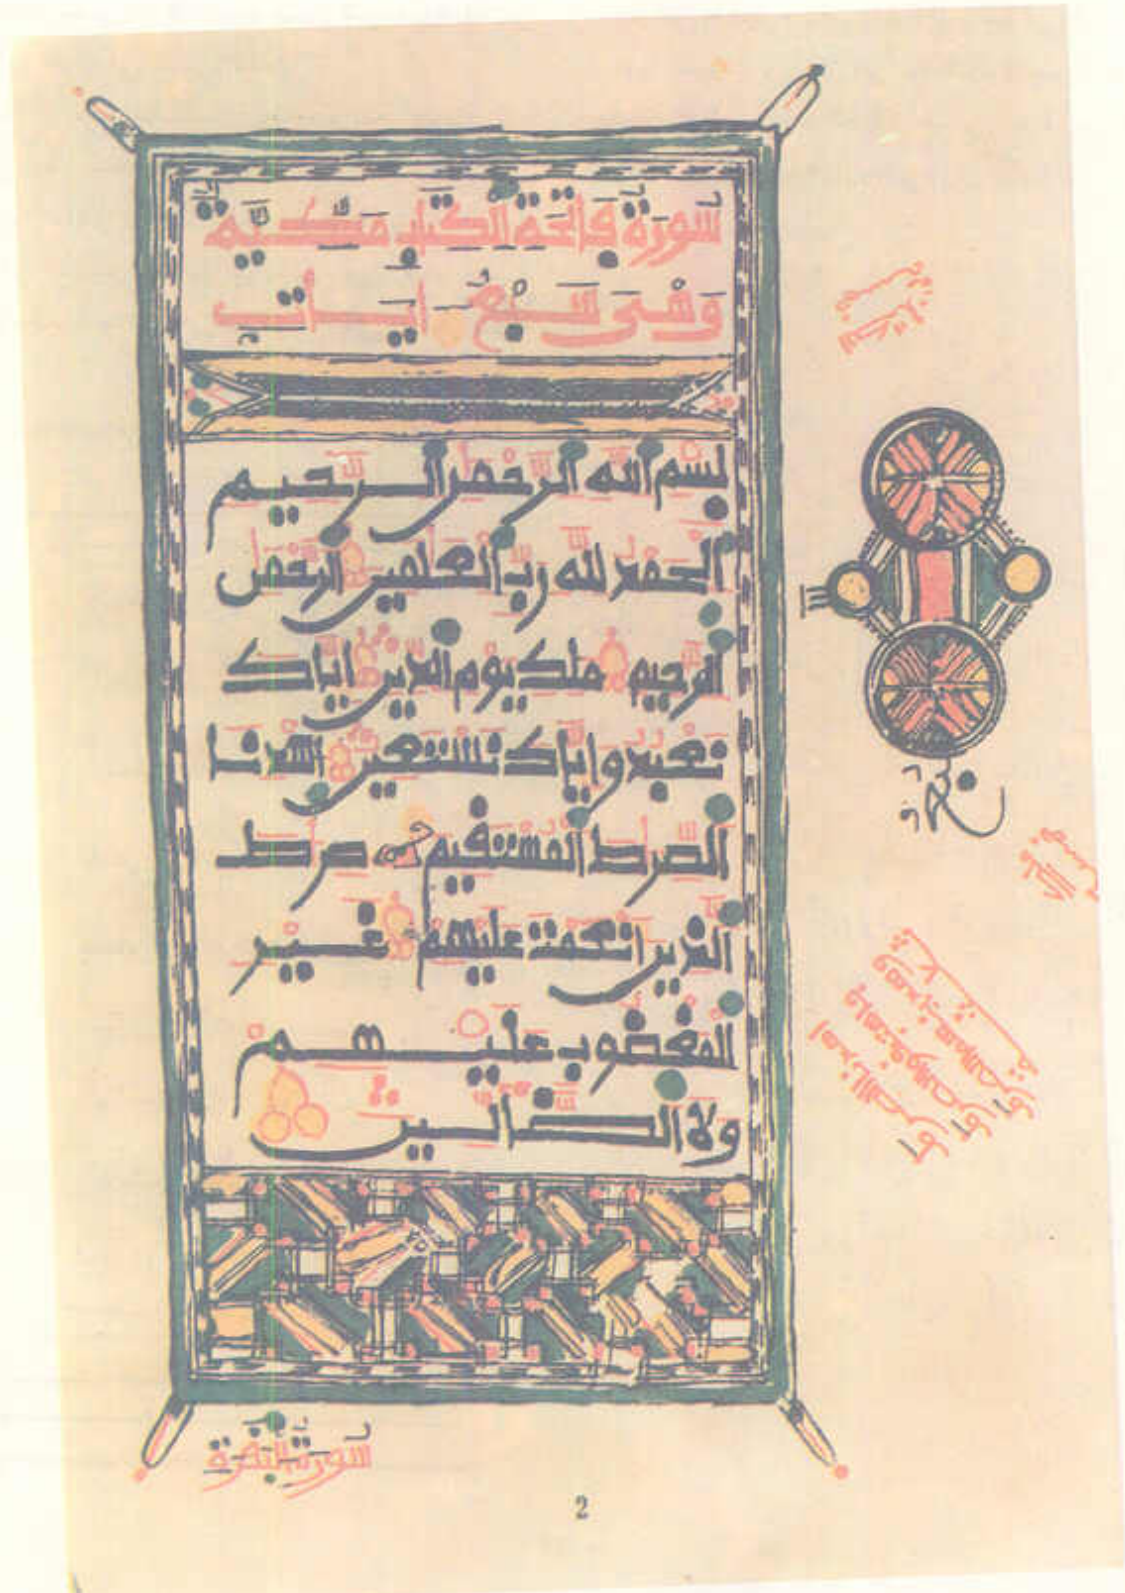 سورة فاتحة الكتاب مكية
وهى سبع ءايات
بسم الله الرحمن الرحيم
الحمد لله رب العلمين الرحمن
الرحيم ملك يوم الدين اياك
نعبد واياك نستعين اهدنا
الصرط المستقيم صرط
الذين انعمت عليهم غير
المغضوب عليهم
ولا الضالين
سورة البقرة
2